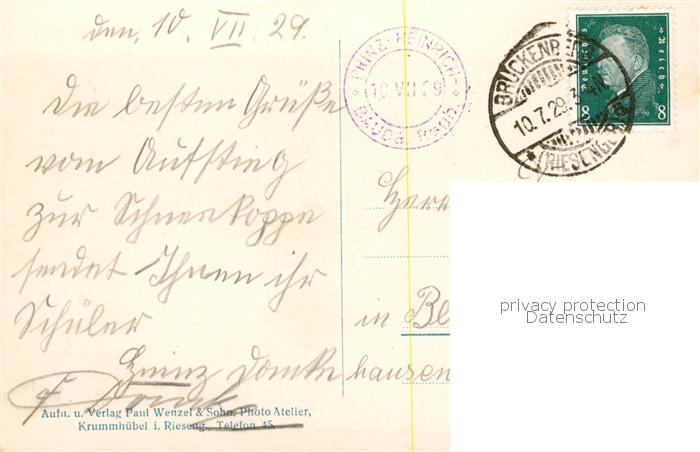 den, 10. VII. 29.
Die besten Grüße
vom Aufstieg
zur Schneekoppe
sendet Ihnen ihr
Schüler
Heinz Domke
Aufn. u. Verlag Paul Wenzel & Sohn, Photo Atelier,
Krummhübel i. Rieseng., Telefon 45.
PRINZ-HEINRICH-
10 VII 29
BRÜCKENB
10.7.29.
(RIESENGEB
Deutsches Reich
8 8
Herr
in
hausen
privacy protection
Datenschutz